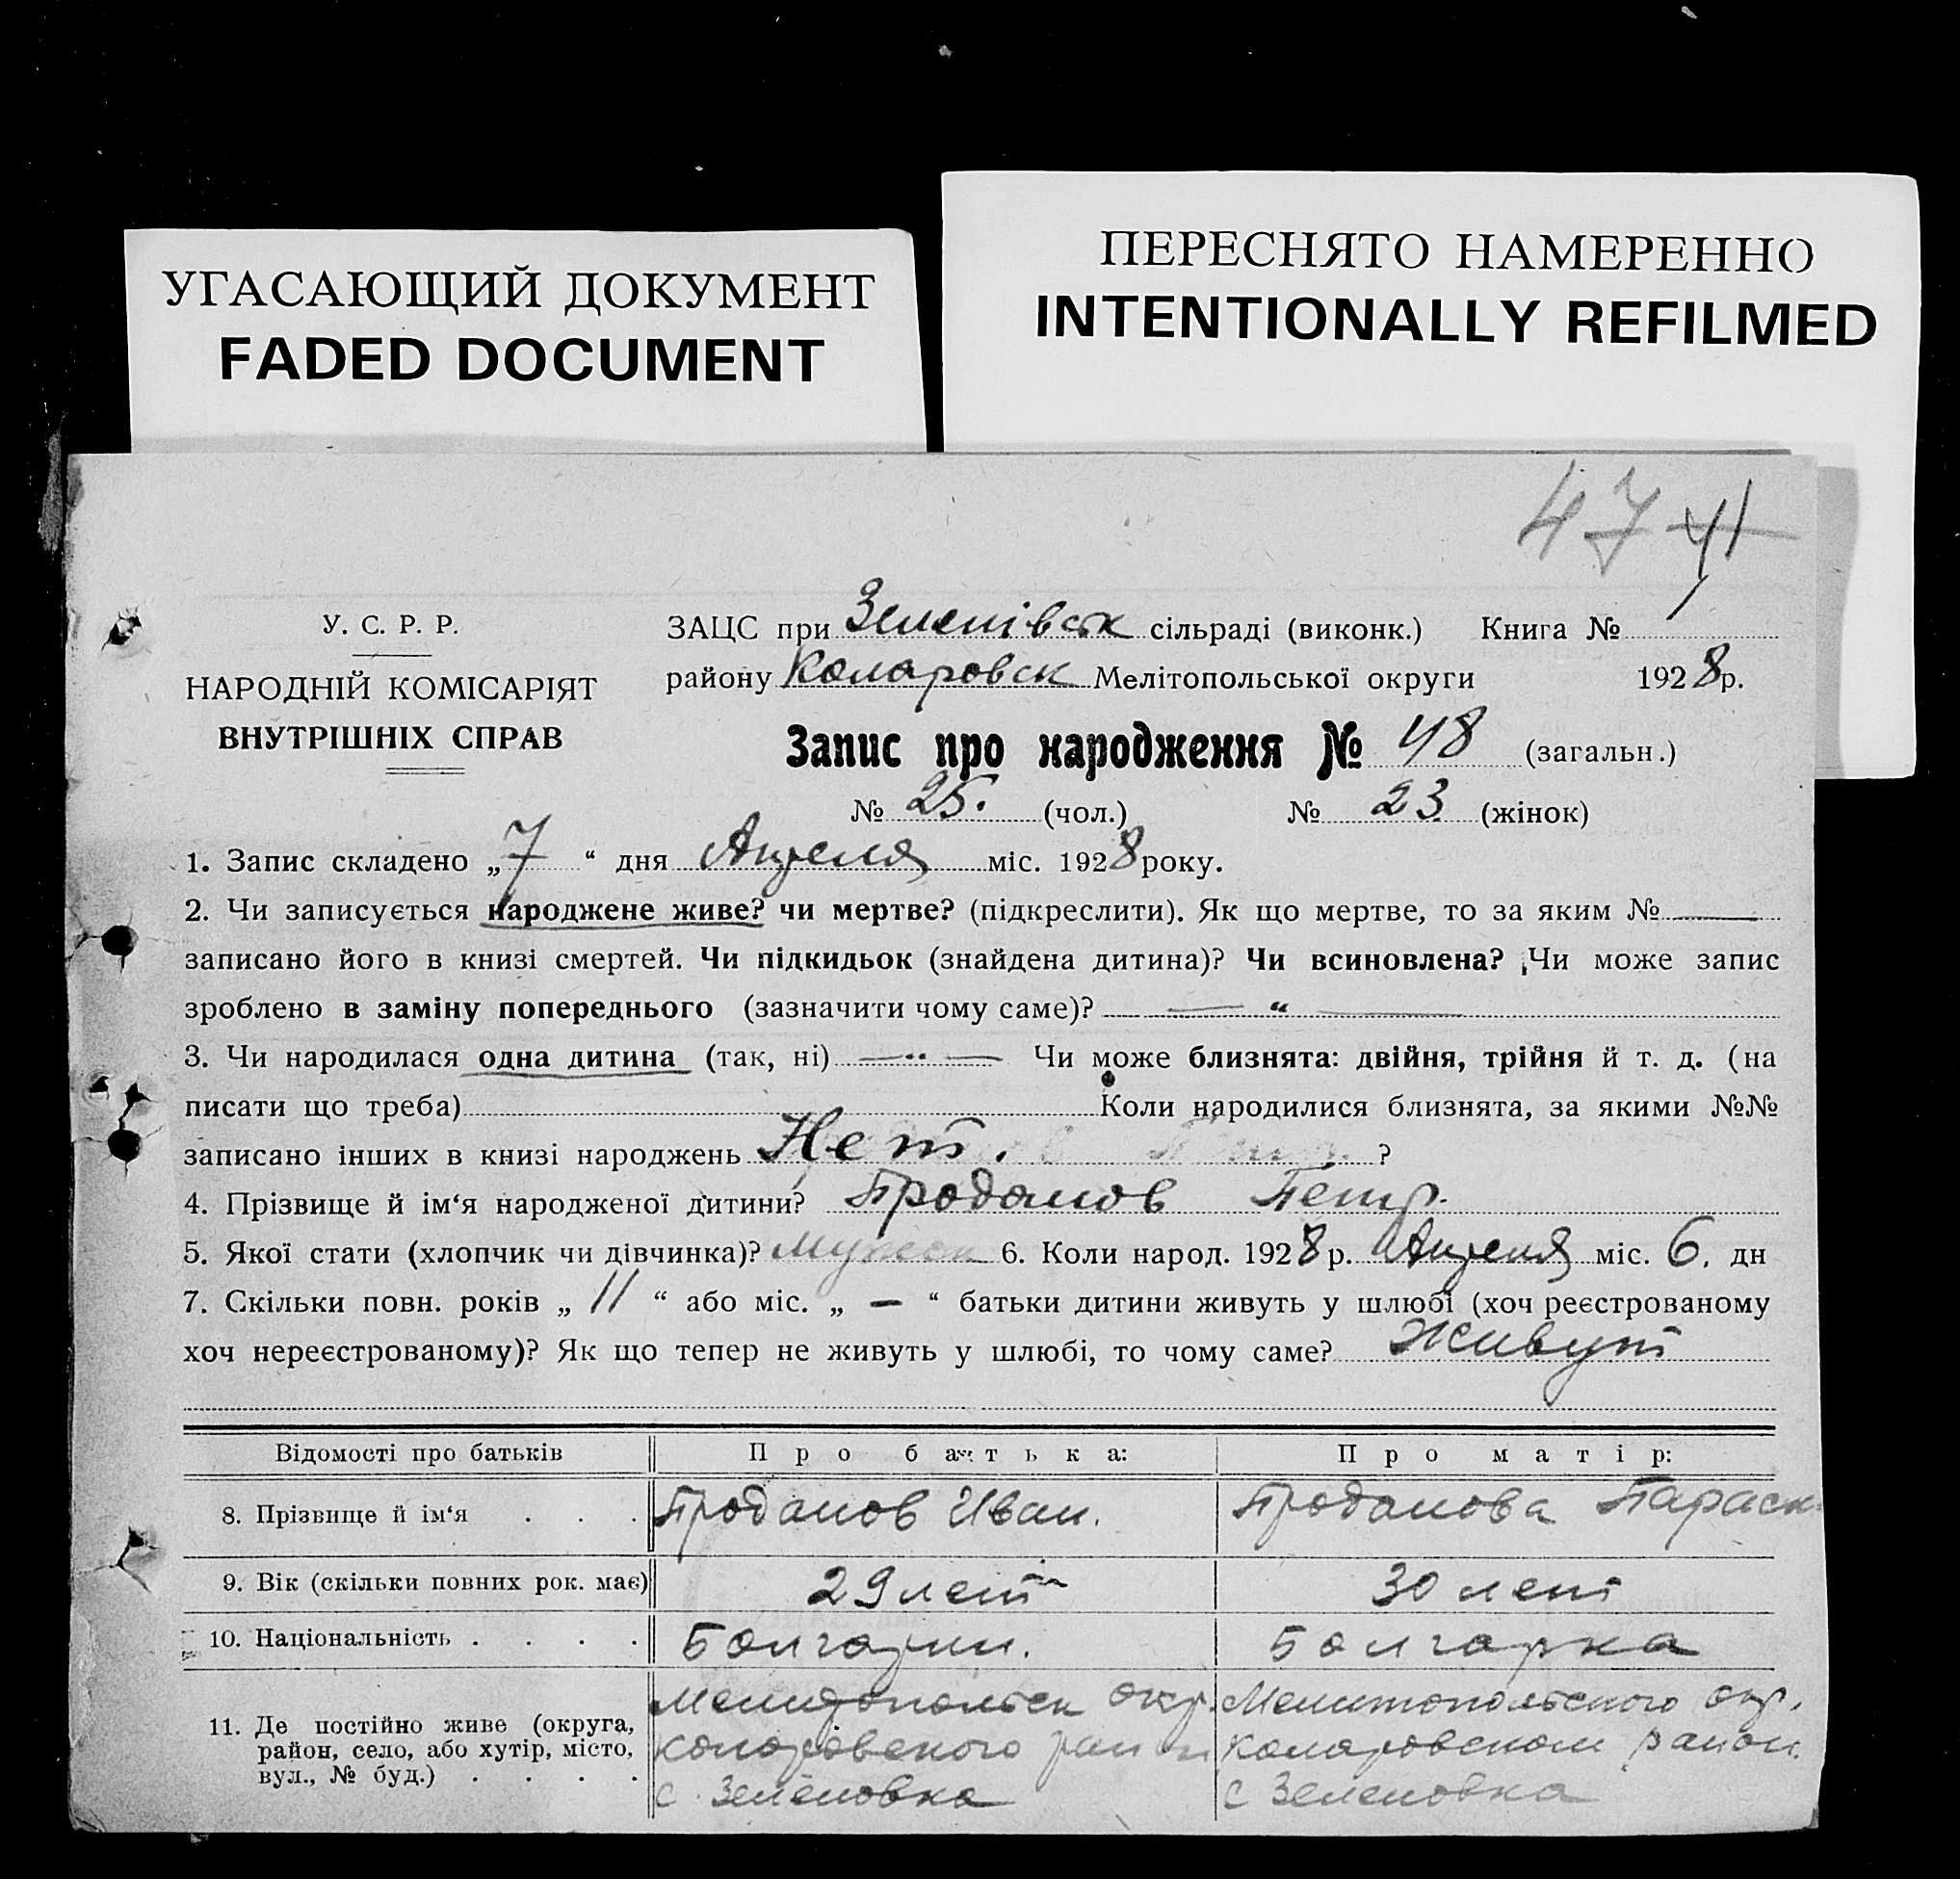 УГАСАЮЩИЙ ДОКУМЕНТ
FADED DOCUMENT
ПЕРЕСНЯТО НАМЕРЕННО
INTENTIONALLY REFILMED
47 41
У. С. Р. Р.
НАРОДНІЙ КОМІСАРІЯТ
ВНУТРІШНІХ СПРАВ
ЗАЦС при Зеленівськ сільраді (виконк.) Книга № 1
району Коларовск Мелітопольської округи 1928р.
Запис про народження № 48 (загальн.)
№ 25. (чол.) № 23 (жінок)
1. Запис складено „7“ дня Апреля міс. 1928 року.
2. Чи записується народжене живе? чи мертве? (підкреслити). Як що мертве, то за яким № —
записано його в книзі смертей. Чи підкидьок (знайдена дитина)? Чи всиновлена? Чи може запис
зроблено в заміну попереднього (зазначити чому саме)? — “ —
3. Чи народилася одна дитина (так, ні) —“— Чи може близнята: двійня, трійня й т. д. (на
писати що треба) Коли народилися близнята, за якими №№
записано інших в книзі народжень Нет. ?
4. Прізвище й ім‘я народженої дитини? Проданов Петр.
5. Якої стати (хлопчик чи дівчинка)? Мужеск 6. Коли народ. 1928р. Апреля міс. 6. дн
7. Скільки повн. років „ 11 “ або міс. „ — “ батьки дитини живуть у шлюбі (хоч реєстрованому
хоч нереєстрованому)? Як що тепер не живуть у шлюбі, то чому саме? Живут
Відомості про батьків Про батька: Про матір:
8. Прізвище й ім‘я . . . Проданов Иван. Проданова Параск
9. Вік (скільки повних рок. має) 29 лет 30 лет
10. Національність . . . . Болгарин. Болгарка
11. Де постійно живе (округа, район, село, або хутір, місто, вул., № буд.) . . . .
Мелитопольск окр.
Коларовского район
с. Зеленовка
Мелитопольского окр.
Коларовском район.
с Зеленовка